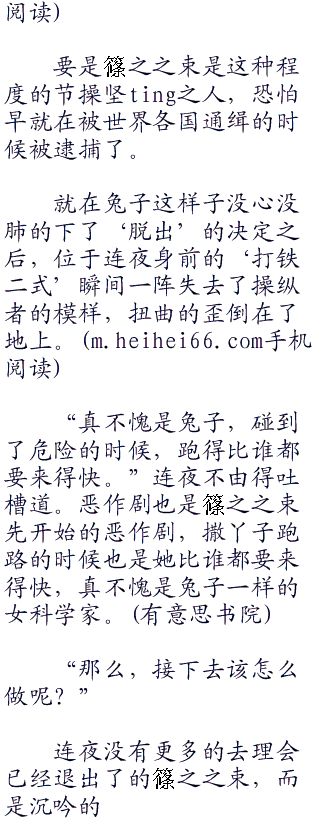 阅读)
要是篠之之束是这种程
度的节操坚ting之人，恐怕
早就在被世界各国通缉的时
候被逮捕了。
就在兔子这样子没心没
肺的下了‘脱出’的决定之
后，位于连夜身前的‘打铁
二式’瞬间一阵失去了操纵
者的模样，扭曲的歪倒在了
地上。(m.heihei66.com手机
阅读)
“真不愧是兔子，碰到
了危险的时候，跑得比谁都
要来得快。”连夜不由得吐
槽道。恶作剧也是篠之之束
先开始的恶作剧，撒丫子跑
路的时候也是她比谁都要来
得快，真不愧是兔子一样的
女科学家。(有意思书院)
“那么，接下去该怎么
做呢？”
连夜没有更多的去理会
已经退出了的篠之之束，而
是沉吟的